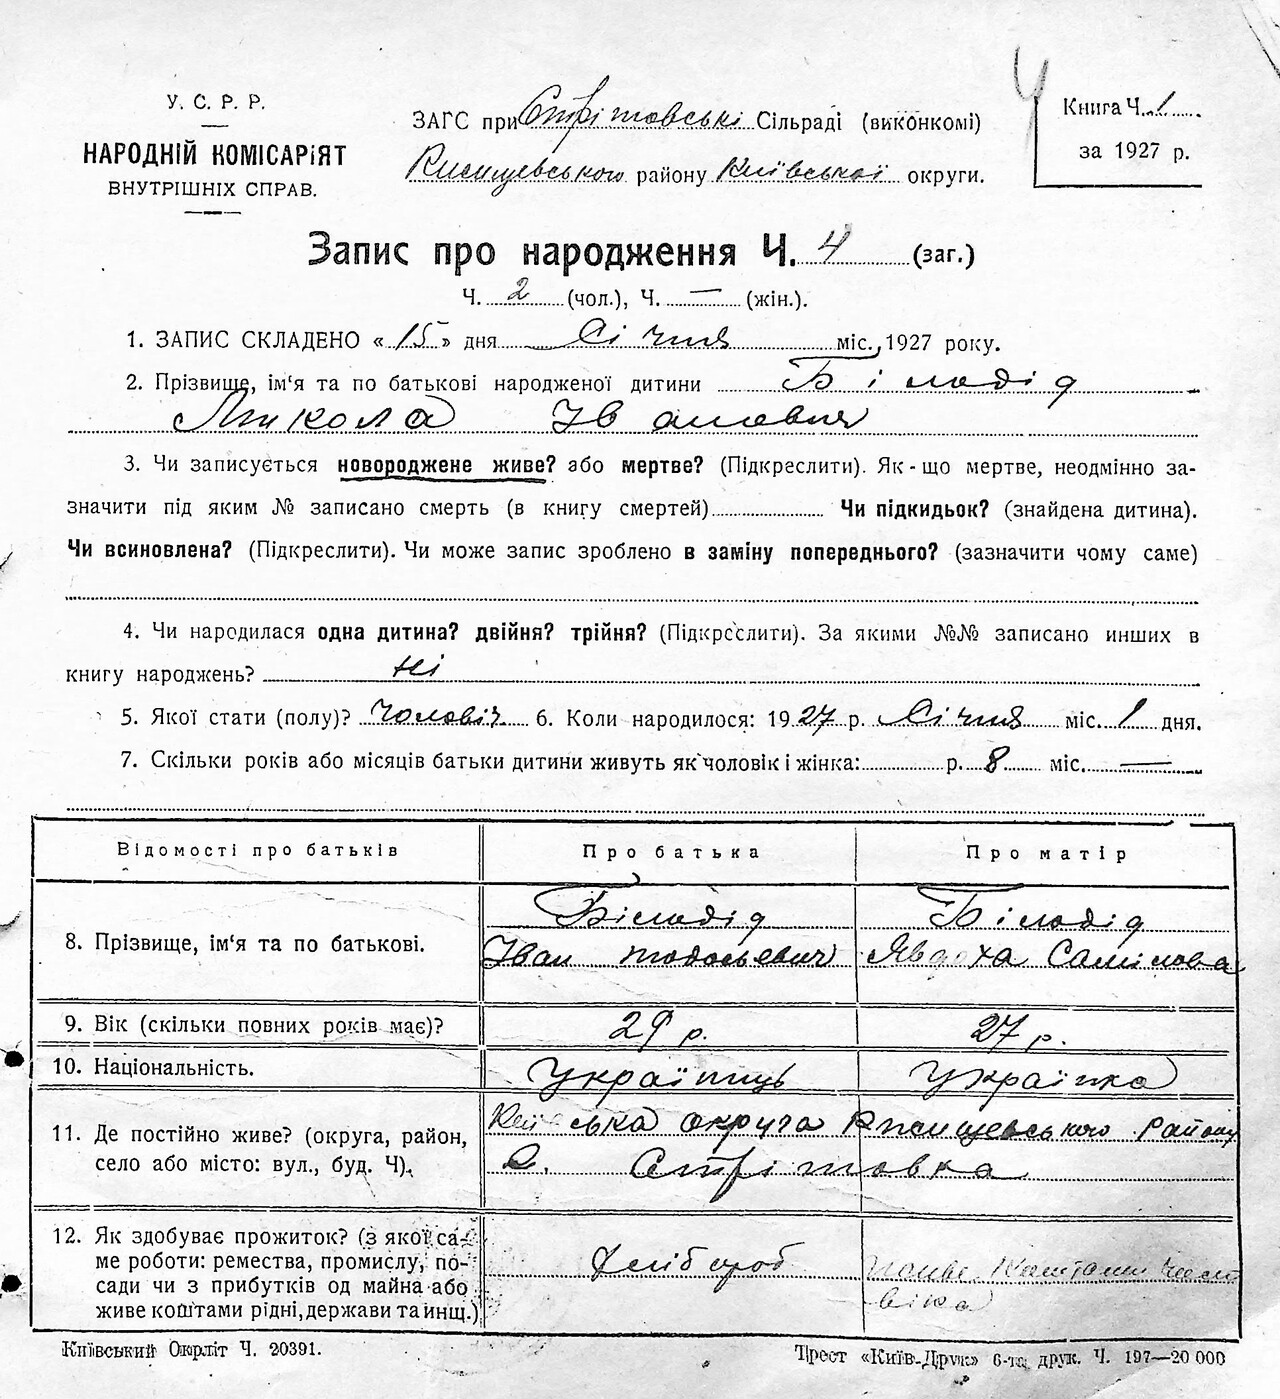 У. С. Р. Р.
НАРОДНІЙ КОМІСАРІЯТ
ВНУТРІШНІХ СПРАВ.
ЗАГС при Стрітовські Сільраді (виконкомі)
Ржищевського району Київської округи.
Книга Ч. 1
за 1927 р.
Запис про народження Ч. 4 (заг.)
Ч. 2 (чол.), Ч. — (жін.).
1. ЗАПИС СКЛАДЕНО « 15 » дня Січня міс. 1927 року.
2. Прізвище, ім‘я та по батькові народженої дитини Білодід
Микола Іванович
3. Чи записується новороджене живе? або мертве? (Підкреслити). Як-що мертве, неодмінно за-
значити під яким № записано смерть (в книгу смертей) Чи підкидьок? (знайдена дитина).
Чи всиновлена? (Підкреслити). Чи може запис зроблено в заміну попереднього? (зазначити чому саме)
4. Чи народилася одна дитина? двійня? трійня? (Підкреслити). За якими №№ записано инших в
книгу народжень? Ні
5. Якої стати (полу)? чоловіч. 6. Коли народилося: 1927 р. Січня міс. 1 дня.
7. Скільки років або місяців батьки дитини живуть як чоловік і жінка: р. 8 міс. —
Відомості про батьків Про батька Про матір
8. Прізвище, ім‘я та по батькові. Білодід Білодід
Іван Тодосьевич Явдоха Самілова
9. Вік (скільки повних років має)? 29 р. 27 р.
10. Національність. Українць Українка
11. Де постійно живе? (округа, район, Київська округа Ржищевського району
село або місто: вул., буд. Ч). С. Стрітовка
12. Як здобуває прожиток? (з якої са-
ме роботи: ремества, промислу, по- Хлібороб
сади чи з прибутків од майна або
живе коштами рідні, держави та инщ.)
Київський Окрліт Ч. 20391.
Трест «Київ-Друк» 6-та друк. Ч. 197—20 000